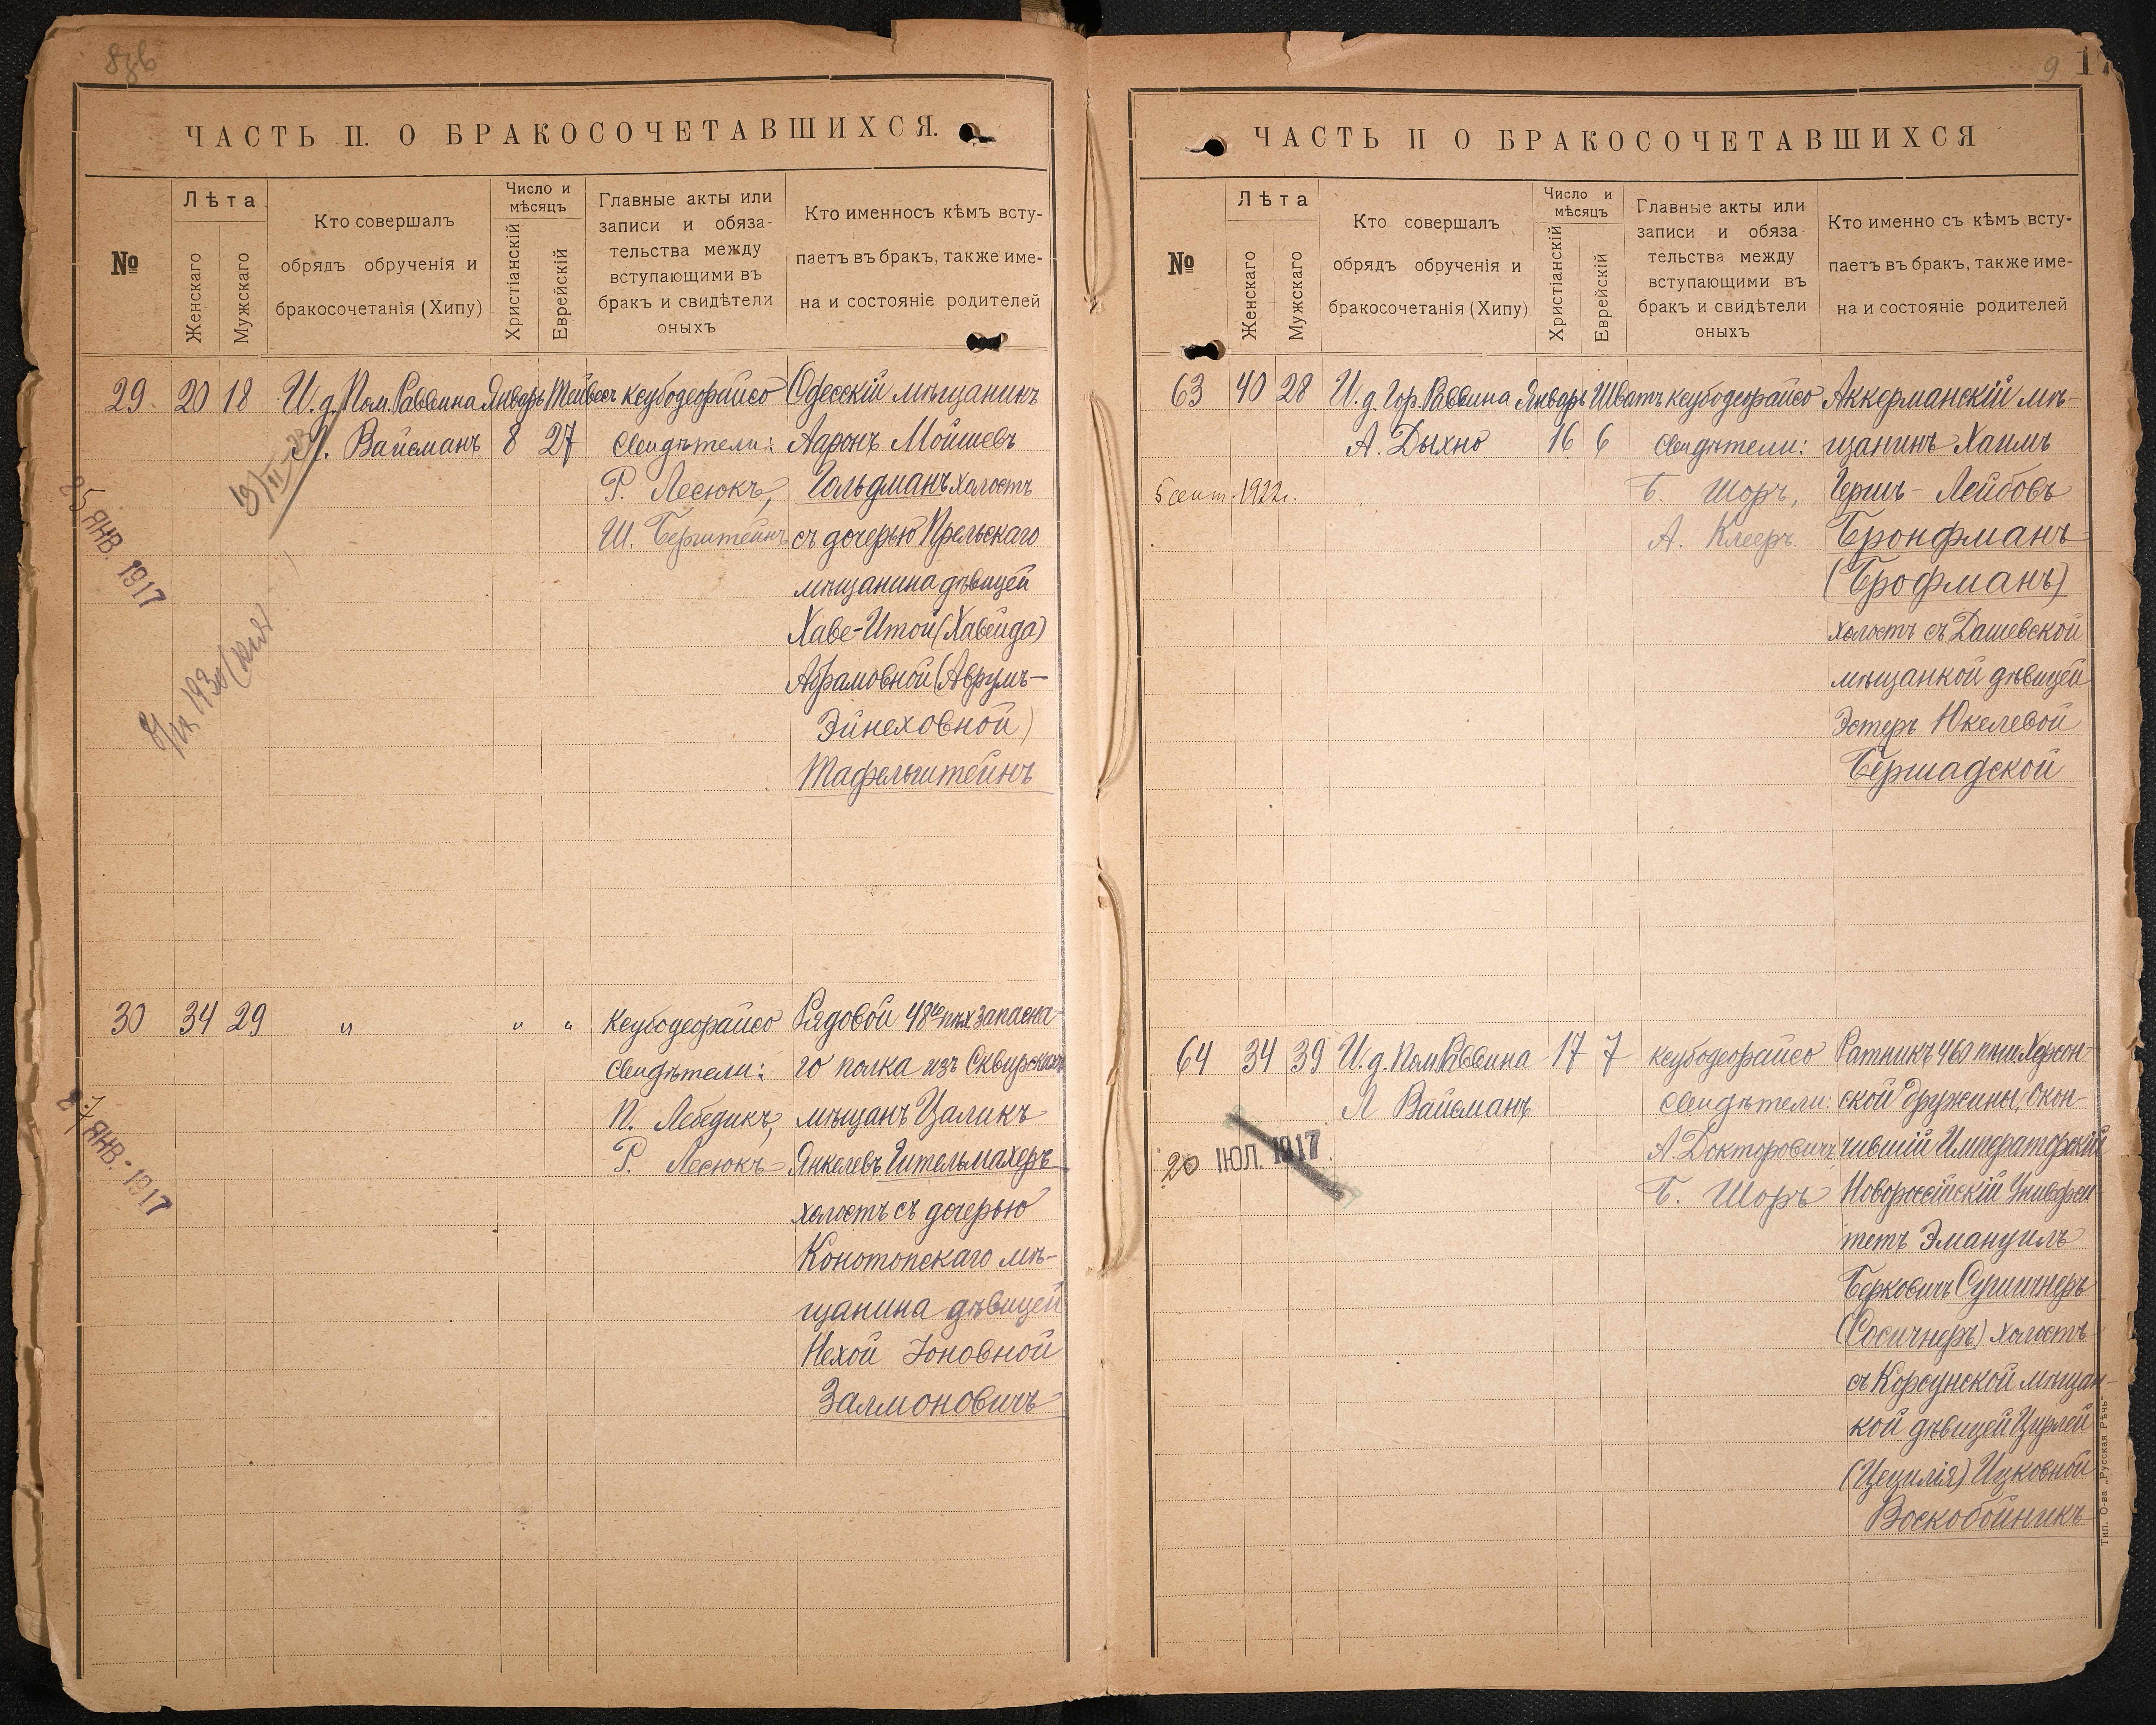 ЧАСТЬ II. О БРАКОСОЧЕТАВШИХСЯ.
№
Лѣта
Женскаго
Мужскаго
Кто совершалъ
обрядъ обрученія и
бракосочетанія (Хипу)
Число и
мѣсяцъ
Христіанскій
Еврейскій
Главные акты или
записи и обяза-
тельства между
вступающими въ
бракъ и свидѣтели
оныхъ
Кто именносъ кѣмъ всту-
паетъ въ бракъ, также име-
на и состояніе родителей
29 20 18 И.д. Пом. Раввина Январь Тейвесъ ксубодеорайсо Одесскій мѣщанинъ
Вайсманъ 8 27 свидѣтели: Ааронъ Мойшевъ
Р. Лесюкъ, Гольдманъ холостъ
Ш. Бернштейнъ съ дочерью Прельскаго
мѣщанина дѣвицей
Хаве-Итой (Хавейда)
Абрамовной (Аврумъ-
Эйнеховной)
Тафельштейнъ
25 ЯНВ. 1917
30 34 29 " " " ксубодеорайсо Рядовой 48го пѣх запасна-
свидѣтели: го полка изъ Сквирскихъ
П. Лебедикъ, мѣщанъ Цаликъ
Р. Лесюкъ Янкелевъ Гительмахеръ
холостъ съ дочерью
Конотопскаго мѣ-
щанина дѣвицей
Нехой Іоновной
Залмоновичъ
27 ЯНВ. 1917
9
17
ЧАСТЬ II О БРАКОСОЧЕТАВШИХСЯ
№
Лѣта
Женскаго
Мужскаго
Кто совершалъ
обрядъ обрученія и
бракосочетанія (Хипу)
Число и
мѣсяцъ
Христіанскій
Еврейскій
Главные акты или
записи и обяза
тельства между
вступающими въ
бракъ и свидѣтели
оныхъ
Кто именно съ кѣмъ всту-
паетъ въ бракъ, также име-
на и состояніе родителей
63 40 28 И.д. Гор. Раввина Январь Шватъ ксубодеорайсо Аккерманскій мѣ-
А. Дыхно 16 6 свидѣтели: щанинъ Хаимъ
5 сент. 1922г. Б. Шоръ, Гершъ-Лейбовъ
А. Клееръ Бронфманъ
(Брофманъ)
холостъ съ Дашевской
мѣщанкой дѣвицей
Эстеръ Юкелевой
Бершадской
64 34 39 И.д. Пом Раввина 17 7 ксубодеорайсо Ратникъ 460 пѣш Херсон-
Л Вайсманъ свидѣтели: ской дружины, Окон-
20 ІЮЛ. 1917 А. Докторовичъ, чившій Императорскій
Б. Шоръ Новороссійскій Универси-
тетъ Эмануилъ
Берковичъ Сушичнеръ
(Сосичнеръ) холостъ
съ Корсунской мѣщан-
кой дѣвицей Цирлей
(Цецилія) Ицковной
Воскобойникъ
Тип. О-ва „Русская Рѣчь"